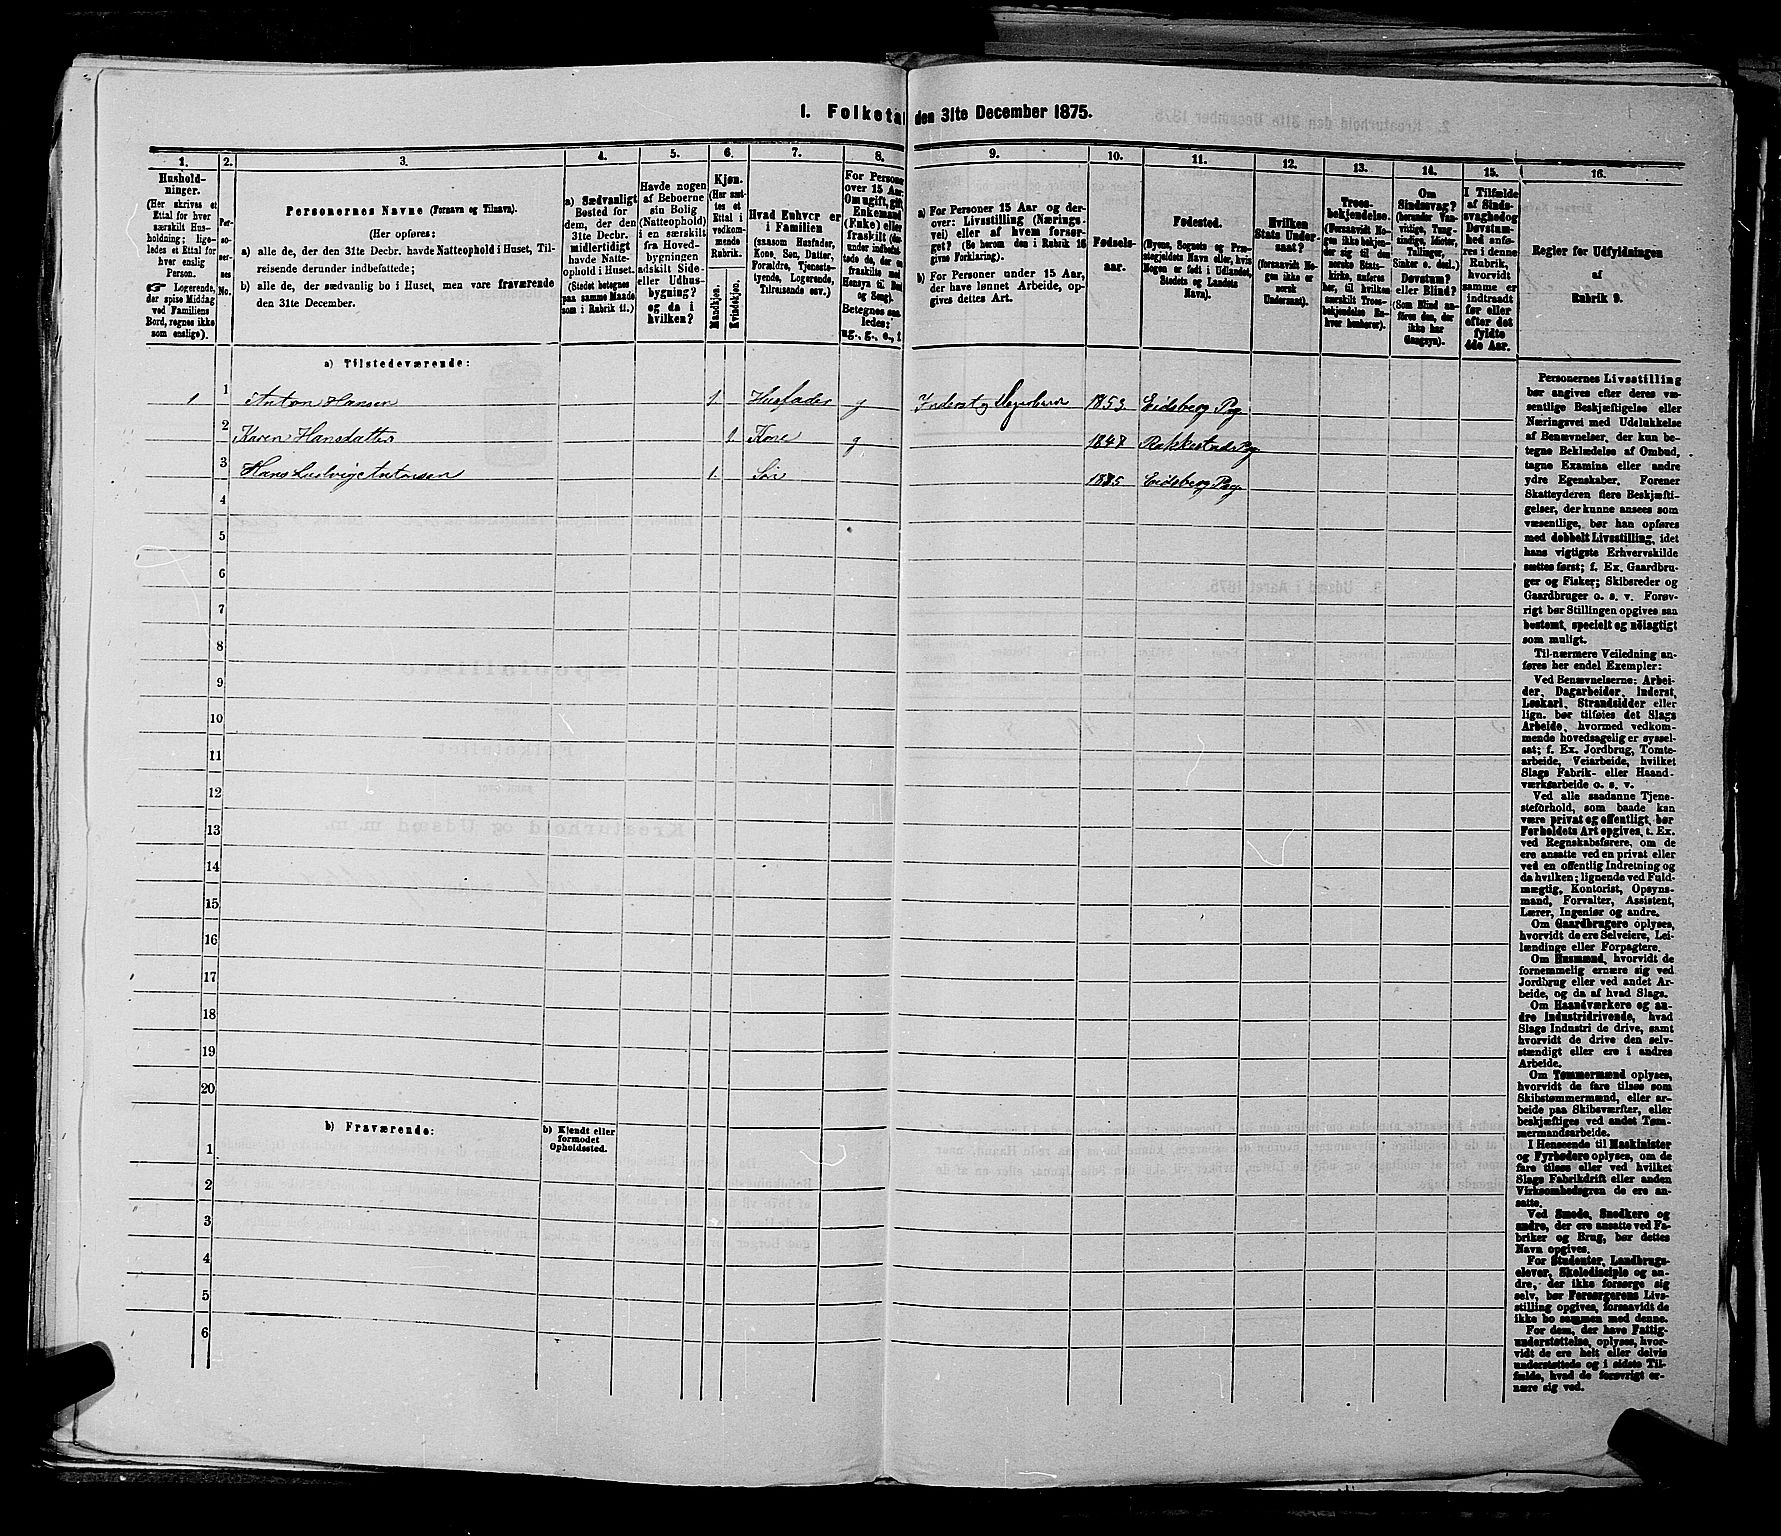 1. Folketal den 31te December 1875.
1. 2. 3. 4. 5. 6. 7. 8. 9. 10. 11. 12. 13. 14. 15. 16.
Hushold-
ninger.
(Her skrives et
Ettal for hver
særskilt Hus-
holdning; lige-
ledes et Ettal for
hver enslig
Person.
☞ Logerende,
der spise Middag
ved Familiens
Bord, regnes ikke
som enslige).
Per-
so-
ner-
nes
No.
Personernes Navne (Fornavn og Tilnavn).
(Her opføres:
a) alle de, der den 31te Decbr. havde Natteophold i Huset, Til-
reisende derunder indbefattede;
b) alle de, der sædvanlig bo i Huset, men vare fraværende
den 31te December.
a) Sædvanligt
Bosted for
dem, der den
31te Decbr.
midlertidigt
havde Natte-
ophold i Huset.
(Stedet betegnes
paa samme Maade
som i Rubrik 11.)
Havde nogen
af Beboerne
sin Bolig
(Natteophold)
i en særskilt
fra Hoved-
bygningen
adskilt Side-
eller Udhus-
bygning?
og da i
hvilken?
Kjøn.
(Her sæt-
tes et
Ettal i
vedkom-
mende
Rubrik.
Mandkjøn.
Kvindekjøn.
Hvad Enhver er
i Familien
(saasom Husfader,
Kone, Søn, Datter,
Forældre, Tjeneste-
tyende, Logerende,
Tilreisende osv.)
For Personer
over 15 Aar:
Om ugift, gift,
Enkemand
(Enke) eller
fraskilt
Betegnes saa-
ledes:
ug., g., e., f.
a) For Personer 15 Aar og der-
over: Livsstilling (Nærings-
vei) eller af hvem forsør-
get? (Se herom den i Rubrik 16
givne Forklaring).
b) For Personer under 15 Aar,
der have lønnet Arbeide, op-
gives dettes Art.
Fødsels-
aar.
Fødested.
(Byens, Sognets og Præ-
stegjeldets Navn eller, hvis
Nogen er født i Udlandet,
Stedets og Landets
Navn).
Hvilken
Stats Under-
saat?
(forsaavidt No-
gen ikke er
norsk
Undersaat).
Troes-
bekjendelse.
(Forsaavidt No-
gen ikke bekjen-
der sig til den
norske Stats-
kirke, anføres
her, til hvilken
særskilt Troes-
bekjendelse En-
hver henhører).
Om
Sindssvag?
(herunder Van-
vittige, Tung-
sindige, Idioter,
Tullinger,
Sinker o. desl.)
Døvstum?
eller Blind?
(Som Blind an-
føres den, der
ikke har
Gangsyn).
I Tilfælde
af Sinds-
svaghed og
Døvstum-
hed anfø-
res i denne
Rubrik,
hvorvidt
samme er
indtraadt
før eller
efter det
fyldte
4de Aar.
Regler for Udfyldningen
af
Rubrik 9.
a) Tilstedeværende:
1 1 Anton Hansen 1. Husfader g Inderst og 1853. Eidsberg Pg
2 Karen Hansdatter 1. Kone g 1847 Rakkestad Pg
3 Hans Ludvig Antonsen 1. Søn 1875 Eidsberg Pg.
4
5
6
7
8
9
10
11
12
13
14
15
16
17
18
19
20
b) Fraværende:
b) Kjendt eller
formodet
Opholdssted.
1
2
3
4
5
6
Personernes Livsstilling
bør angives efter deres væ-
sentlige Beskjæftigelse eller
Næringsvei med Udelukkelse
af Benævnelser, der kun be-
tegne Beklædelse af Ombud,
tagne Examina eller andre
ydre Egenskaber. Forener
Skatteyderen flere Beskjæfti-
gelser, der kunne ansees som
væsentlige, bør han opføres
med dobbelt Livsstilling, idet
hans vigtigste Erhvervskilde
sættes først; f. Ex. Gaardbru-
ger og Fisker; Skibsreder og
Gaardbruger o. s. v. Forøv-
rigt bør Stillingen opgives saa
bestemt, specielt og nöiagtigt
som muligt.
Til nærmere Veiledning an-
føres her endel Exempler:
Ved Benævnelserne: Arbei-
der, Dagarbeider, Inderst,
Løskarl, Strandsidder eller
lign. bør tilføies det Slags
Arbeide, hvormed vedkom-
mende hovedsagelig er syssel-
sat; f. Ex. Jordbrug, Tomte-
arbeide, Veiarbeide, hvilket
Slags Fabrik- eller Haand-
værksarbeide o. s. v.
Ved alle saadanne Tjene-
steforhold, som baade kan
være privat og offentligt, bør
Forholdets Art opgives, t. Ex.
ved Regnskabsførere, om de
ere ansatte ved en privat eller
ved en offentlig Indretning og
da hvilken; lignende ved Fuld-
mægtig, Kontorist, Opsyns-
mand, Forvalter, Assistent,
Lærer, Ingeniør og andre.
Om Gaardbrugere oplyses,
hvorvidt de ere Selveiere, Lei-
lændinge eller Forpagtere.
Om Husmænd, hvorvidt de
fornemmelig ernære sig ved
Jordbrug eller ved andet Ar-
beide, og da af hvad Slags.
Om Haandværkere og an-
dre Industridrivende, hvad
Slags Industri de drive, samt
hvorvidt de drive den selv-
stændigt eller ere i andres
Arbeide.
Om Tømmermænd oplyses,
hvorvidt de fare tilsøs som
Skibstømmermænd, eller ar-
beide paa Skibsværfter, eller
beskjæftiges ved andet Tøm-
mermandsarbeide.
I Henseende til Maskinister
og Fyrbødere oplyses, om de
fare tilsøs eller ved hvilket
Slags Fabrikdrift eller anden
Virksomhedsgren de ere an-
satte.
Ved Smede, Snedkere og
andre, der ere ansatte ved Fa-
briker og Brug, bør dettes
Navn opgives.
For Studenter, Landbrugs-
elever, Skoledisciple og an-
dre, der ikke forsørge sig
selv, bør Forsørgerens Livs-
stilling opgives, forsaavidt de
ikke bo sammen med denne.
For dem, der have Fattig-
understøttelse, oplyses, hvor-
vidt de ere helt eller delvis
understøttede og i sidste Til-
fælde, hvad de forøvrigt er-
nære sig ved.